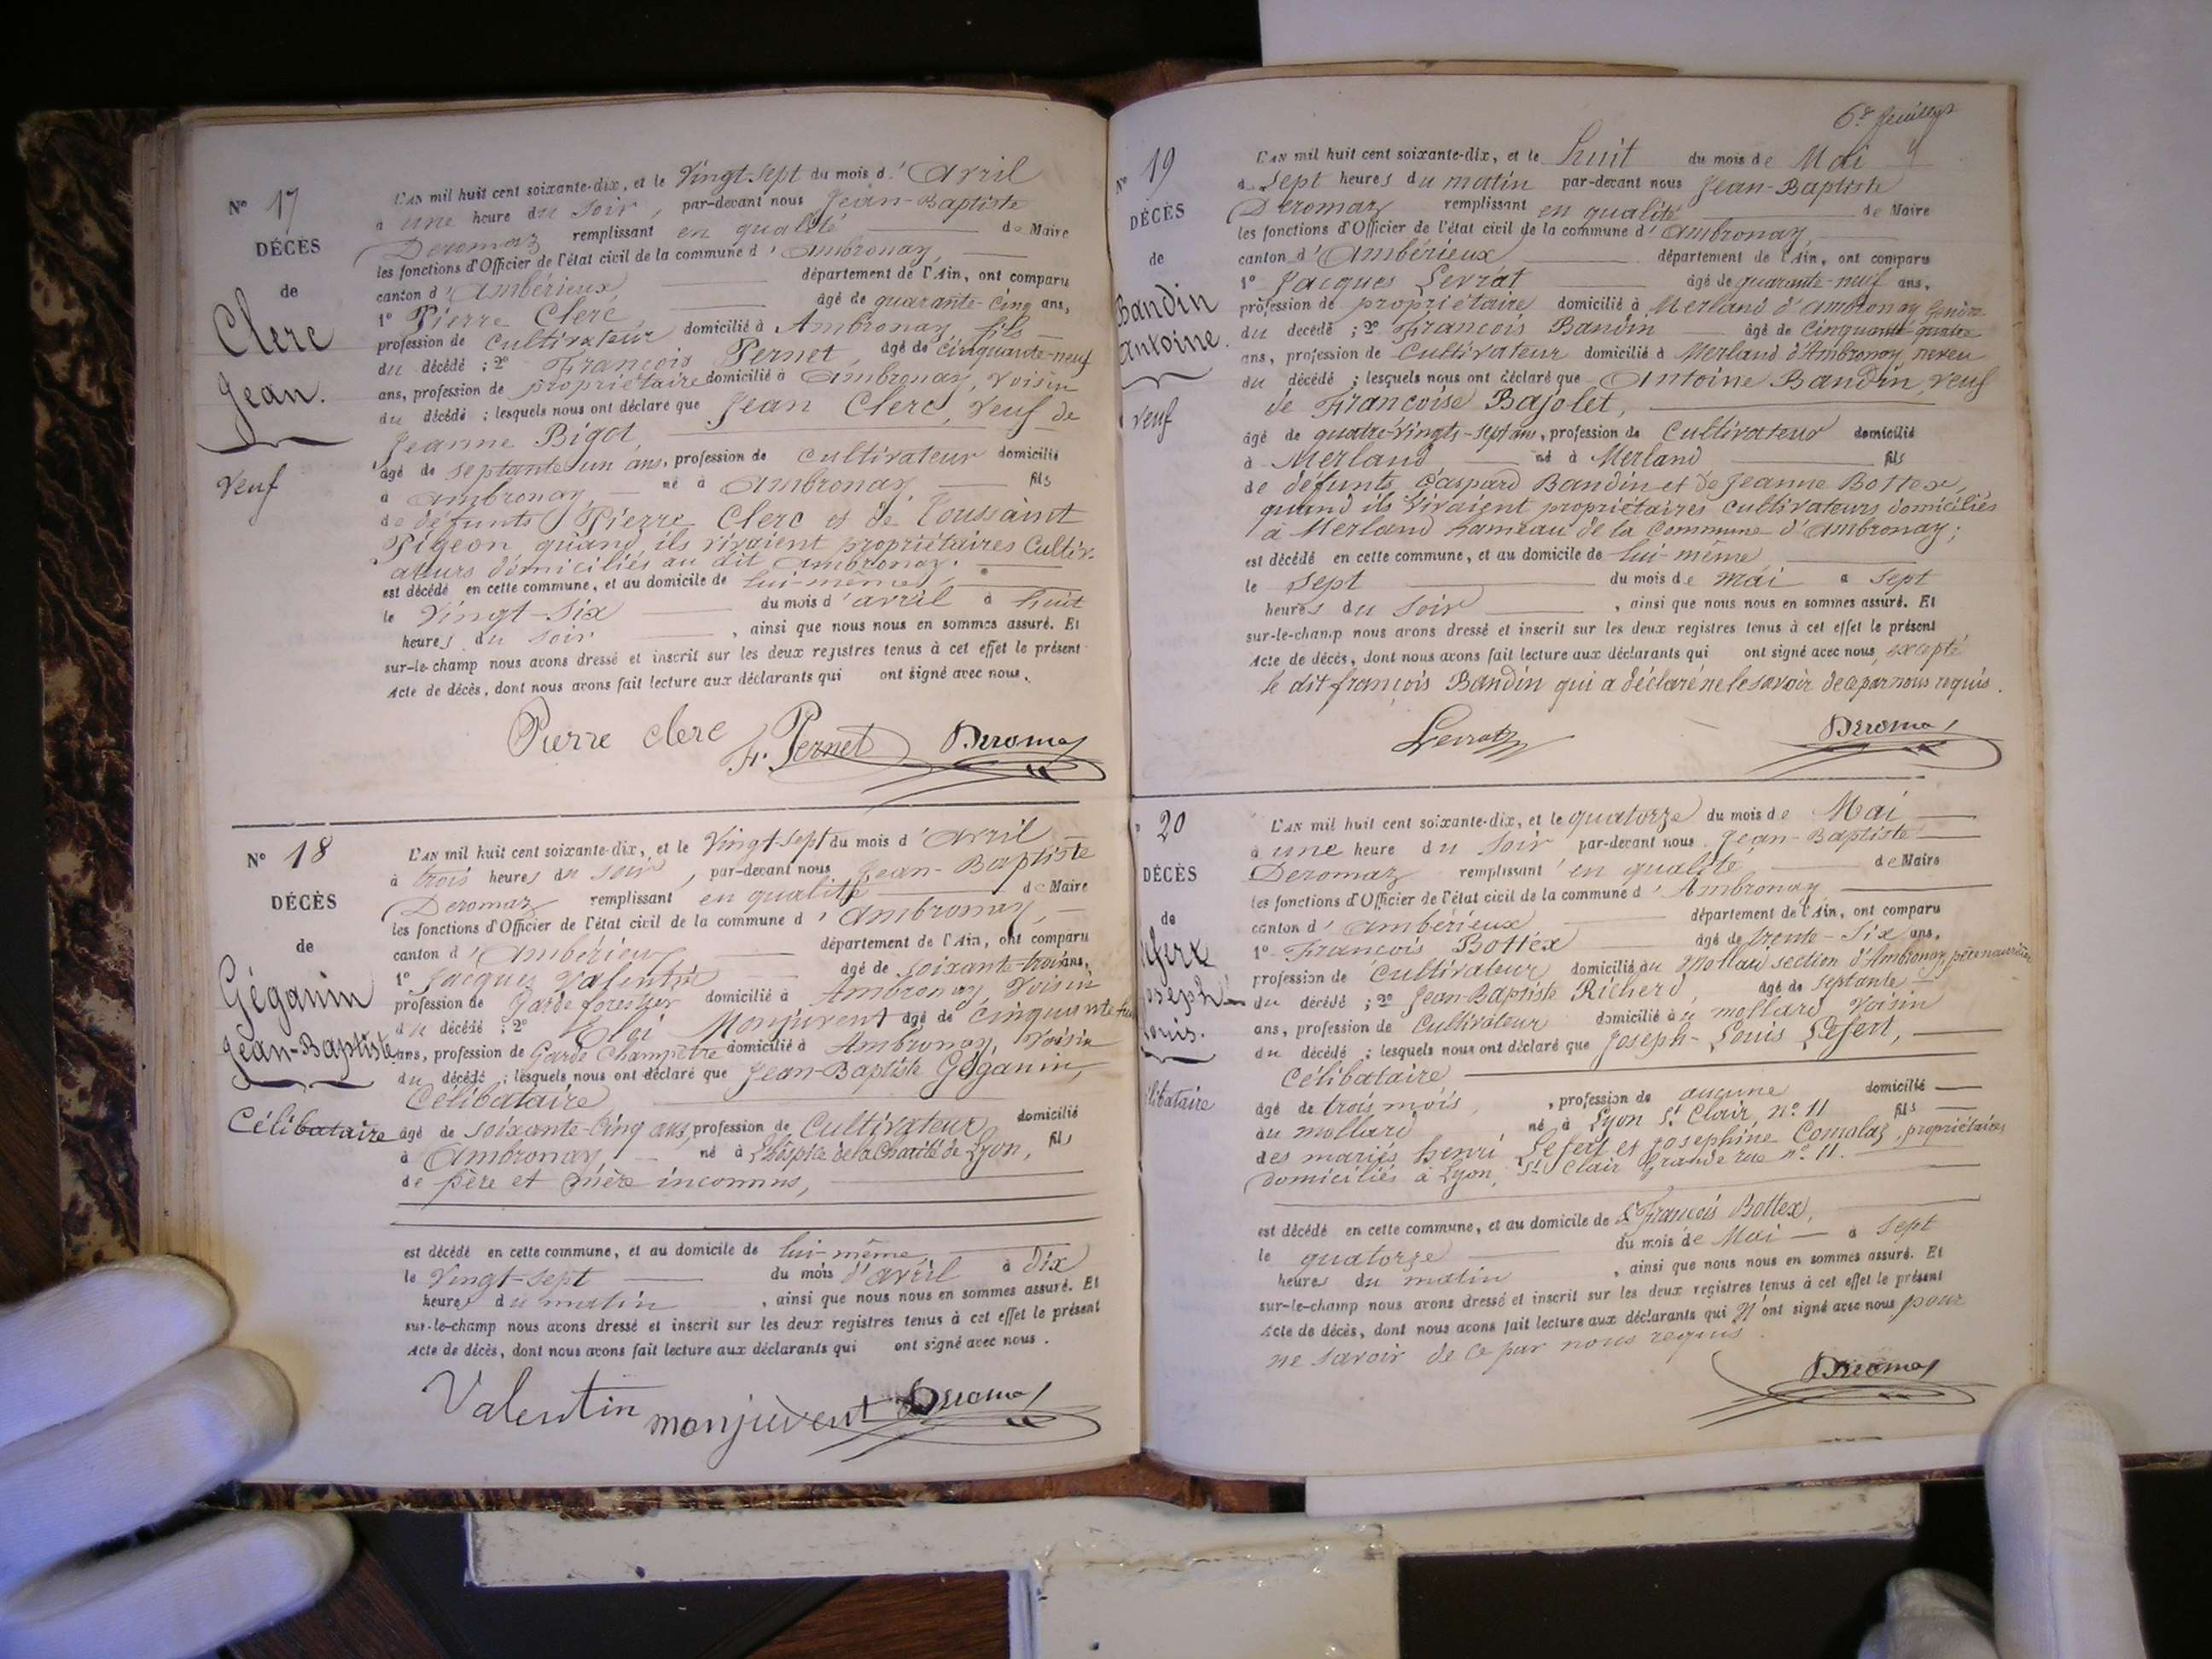 N° 17
DÉCÈS
de
Clerc
Jean.
Veuf
L'AN mil huit cent soixante-dix, et le Vingt-Sept du mois d'Avril
à une heure du Soir, par-devant nous Jean-Baptiste
Deromaz remplissant en qualité de Maire
les fonctions d'Officier de l'état civil de la commune d'Ambronay,
canton d'Ambérieux, département de l'Ain, ont comparu
1° Pierre Clerc, âgé de quarante-cinq ans,
profession de Cultivateur domicilié à Ambronay, fils
du décédé ; 2° François Pernet, âgé de cinquante-neuf
ans, profession de propriétaire domicilié à Ambronay, Voisin
du décédé ; lesquels nous ont déclaré que Jean Clerc, Veuf de
Jeanne Bigot,
âgé de septante-un ans, profession de Cultivateur domicilié
à Ambronay, né à Ambronay, fils
de défunts Pierre Clerc et de Toussaint
Pigeon, quand ils vivaient propriétaires Cultiv-
ateurs domiciliés au dit Ambronay.
est décédé en cette commune, et au domicile de lui-même,
le Vingt-Six du mois d'avril à huit
heures du Soir, ainsi que nous nous en sommes assuré. Et
sur-le-champ nous avons dressé et inscrit sur les deux registres tenus à cet effet le présent
Acte de décès, dont nous avons fait lecture aux déclarants qui ont signé avec nous.
Pierre clerc F. Pernet Deromaz
N° 18
DÉCÈS
de
Géganin
Jean-Baptiste
Célibataire
L'AN mil huit cent soixante-dix, et le Vingt-Sept du mois d'Avril
à trois heures du Soir, par-devant nous Jean-Baptiste
Deromaz remplissant en qualité de Maire
les fonctions d'Officier de l'état civil de la commune d'Ambronay,
canton d'Ambérieux département de l'Ain, ont comparu
1° Jacques Valentin âgé de soixante-trois ans,
profession de Garde forestier domicilié à Ambronay, Voisin
du décédé ; 2° Eloi Monjuvent âgé de cinquante
ans, profession de Garde Champêtre domicilié à Ambronay, Voisin
du décédé ; lesquels nous ont déclaré que Jean-Baptiste Géganin,
Célibataire
âgé de soixante-cinq ans, profession de Cultivateur domicilié
à Ambronay, né à L'hospice de la Charité de Lyon, fils
de père et mère inconnus,
est décédé en cette commune, et au domicile de lui-même,
le Vingt-sept du mois d'avril à Dix
heures du matin, ainsi que nous nous en sommes assuré. Et
sur-le-champ nous avons dressé et inscrit sur les deux registres tenus à cet effet le présent
Acte de décès, dont nous avons fait lecture aux déclarants qui ont signé avec nous.
Valentin monjuvent Deromaz
N° 19
DÉCÈS
de
Bandin
Antoine.
Veuf
L'AN mil huit cent soixante-dix, et le huit du mois de Mai
à Sept heures du matin par-devant nous Jean-Baptiste
Deromaz remplissant en qualité de Maire
les fonctions d'Officier de l'état civil de la commune d'Ambronay,
canton d'Ambérieux département de l'Ain, ont comparu
1° Jacques Levrat âgé de quarante-neuf ans,
profession de propriétaire domicilié à Merland d'Ambronay Gendre
du décédé ; 2° François Bandin âgé de Cinquante-quatre
ans, profession de Cultivateur domicilié à Merland d'Ambronay, neveu
du décédé ; lesquels nous ont déclaré que Antoine Bandin, veuf
de Françoise Bajolet,
âgé de quatre-vingts-sept ans, profession de Cultivateur domicilié
à Merland né à Merland fils
de défunts Gaspard Bandin et de Jeanne Bottex,
quand ils vivaient propriétaires cultivateurs domiciliés
à Merland hameau de la Commune d'Ambronay ;
est décédé en cette commune, et au domicile de lui-même
le sept du mois de mai à sept
heures du Soir, ainsi que nous nous en sommes assuré. Et
sur-le-champ nous avons dressé et inscrit sur les deux registres tenus à cet effet le présent
Acte de décès, dont nous avons fait lecture aux déclarants qui ont signé avec nous, excepté
le dit françois Bandin qui a déclaré ne le savoir de ce par nous requis.
Levrat Deromaz
20
DÉCÈS
de
Joseph
Louis.
L'AN mil huit cent soixante-dix, et le quatorze du mois de Mai
à une heure du Soir par-devant nous Jean-Baptiste
Deromaz remplissant en qualité de Maire
les fonctions d'Officier de l'état civil de la commune d'Ambronay
canton d'Ambérieux département de l'Ain, ont comparu
1° François Bottex âgé de trente-Six ans,
profession de Cultivateur domicilié au Mollard section d'Ambronay, père nourricier
du décédé ; 2° Jean-Baptiste Richerd, âgé de septante
ans, profession de Cultivateur domicilié au mollard Voisin
du décédé ; lesquels nous ont déclaré que Joseph-Louis Lefert,
Célibataire
âgé de trois mois, profession de aucune domicilié
au mollard né à Lyon St Clair, n° 11 fils
des mariés henri Lefert et Josephine, propriétaires
domiciliés à Lyon, St Clair Grande rue n° 11.
est décédé en cette commune, et au domicile de François Bottex,
le quatorze du mois de Mai à Sept
heures du matin, ainsi que nous nous en sommes assuré. Et
sur-le-champ nous avons dressé et inscrit sur les deux registres tenus à cet effet le présent
Acte de décès, dont nous avons fait lecture aux déclarants qui n'ont signé avec nous pour
ne savoir de ce par nous requis.
Deromaz